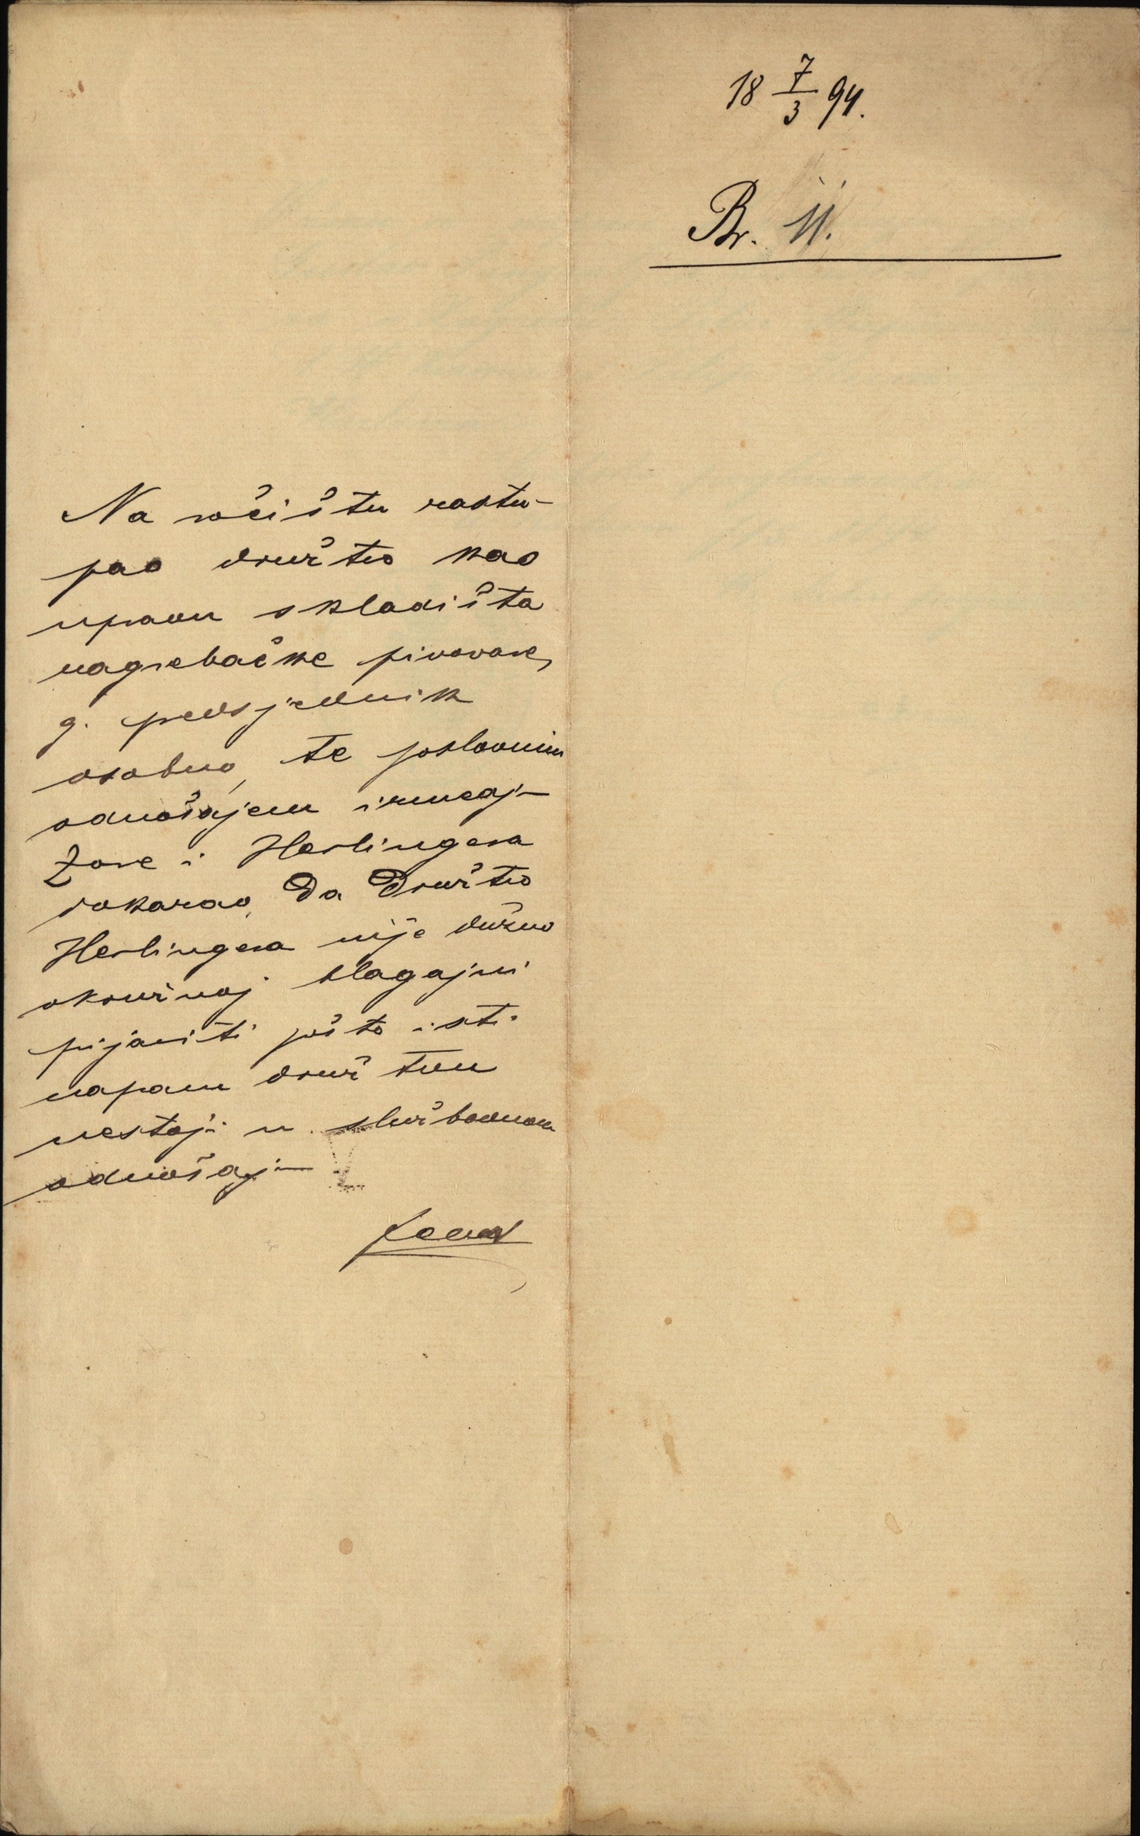 18 7/3 94.
Br. 11.
Na ročištu zastu-
pao družtvo kao
upravu skladišta
zagrebačke pivovare,
g. predsjednik
osobno, te poslovnim
odnošajem izmedj
Zore i Herlingera
dokazao, da Družtvo
Herlingera nije dužno
okružnoj blagajni
prijaviti pošto isti
napram družtvu
nestoji u službovnom
odnošaju